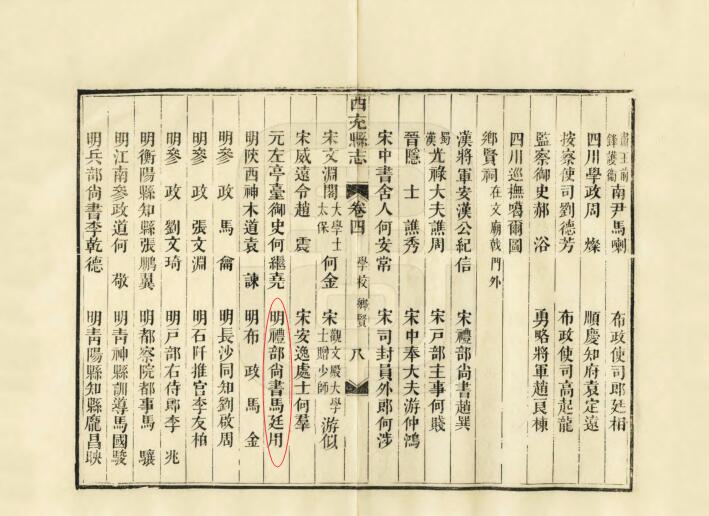 王前鋒護衛南尹馬喇 布政使司郎廷相
四川學政周燦 順慶知府袁定遠
按察使司劉德芳 布政使司高起龍
監察御史郝浴 勇略將軍趙良棟
四川巡撫噶爾圖
鄉賢祠在文廟戟門外
漢將軍安漢公紀信 宋禮部尚書趙巽
蜀漢光祿大夫譙周 宋戸部主事何賤
晉隱士譙秀 宋中奉大夫游仲鴻
宋中書舍人何安常 宋司封員外郎何涉
西充縣志 卷四 學校 鄉賢 八
宋文淵閣大學士太保何金 宋觀文殿大學士贈少師游似
宋威遠令趙震 宋安逸處士何羣
元左亭臺御史何繼堯 明禮部尚書馬廷用
明陝西神木道袁諫 明布政馬金
明參政馬龠 明長沙同知劉啟周
明參政張文淵 明石阡推官李友柏
明參政劉文琦 明戸部右侍郎李兆
明衡陽縣知縣張鵬翼 明都察院都事馬驤
明江南參政道何敬 明靑神縣訓導馬國駿
明兵部尚書李乾德 明靑陽縣知縣龐昌映